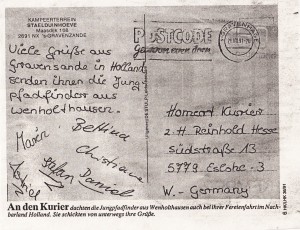 KAMPEERTERREIN
STAELDUINHOEVE
Maasdijk 198
2691 NX 's-GRAVENZANDE
POSTCODE
Viele Grüße aus
Gravensande in Holland
senden ihnen die Jung-
pfadfinder aus
Wenholthausen.
Maren Bettina
Christiane
Stefan Daniel
Homeart Kurier
z.H. Reinhold Hesse
Südstraße 13
5779 Eslohe-3
W.-Germany
An den Kurier dachten die Jungpfadfinder aus Wenholthausen auch bei ihrer Ferienfahrt im Nach-
berland Holland. Sie schickten von unterwegs ihre Grüße.